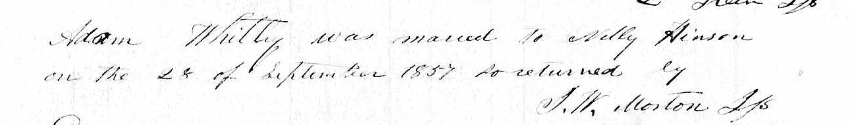 Adam Whitty was maried to Nelly Hinson
on the 28 of September 1857 so returned by
J. W. Morton